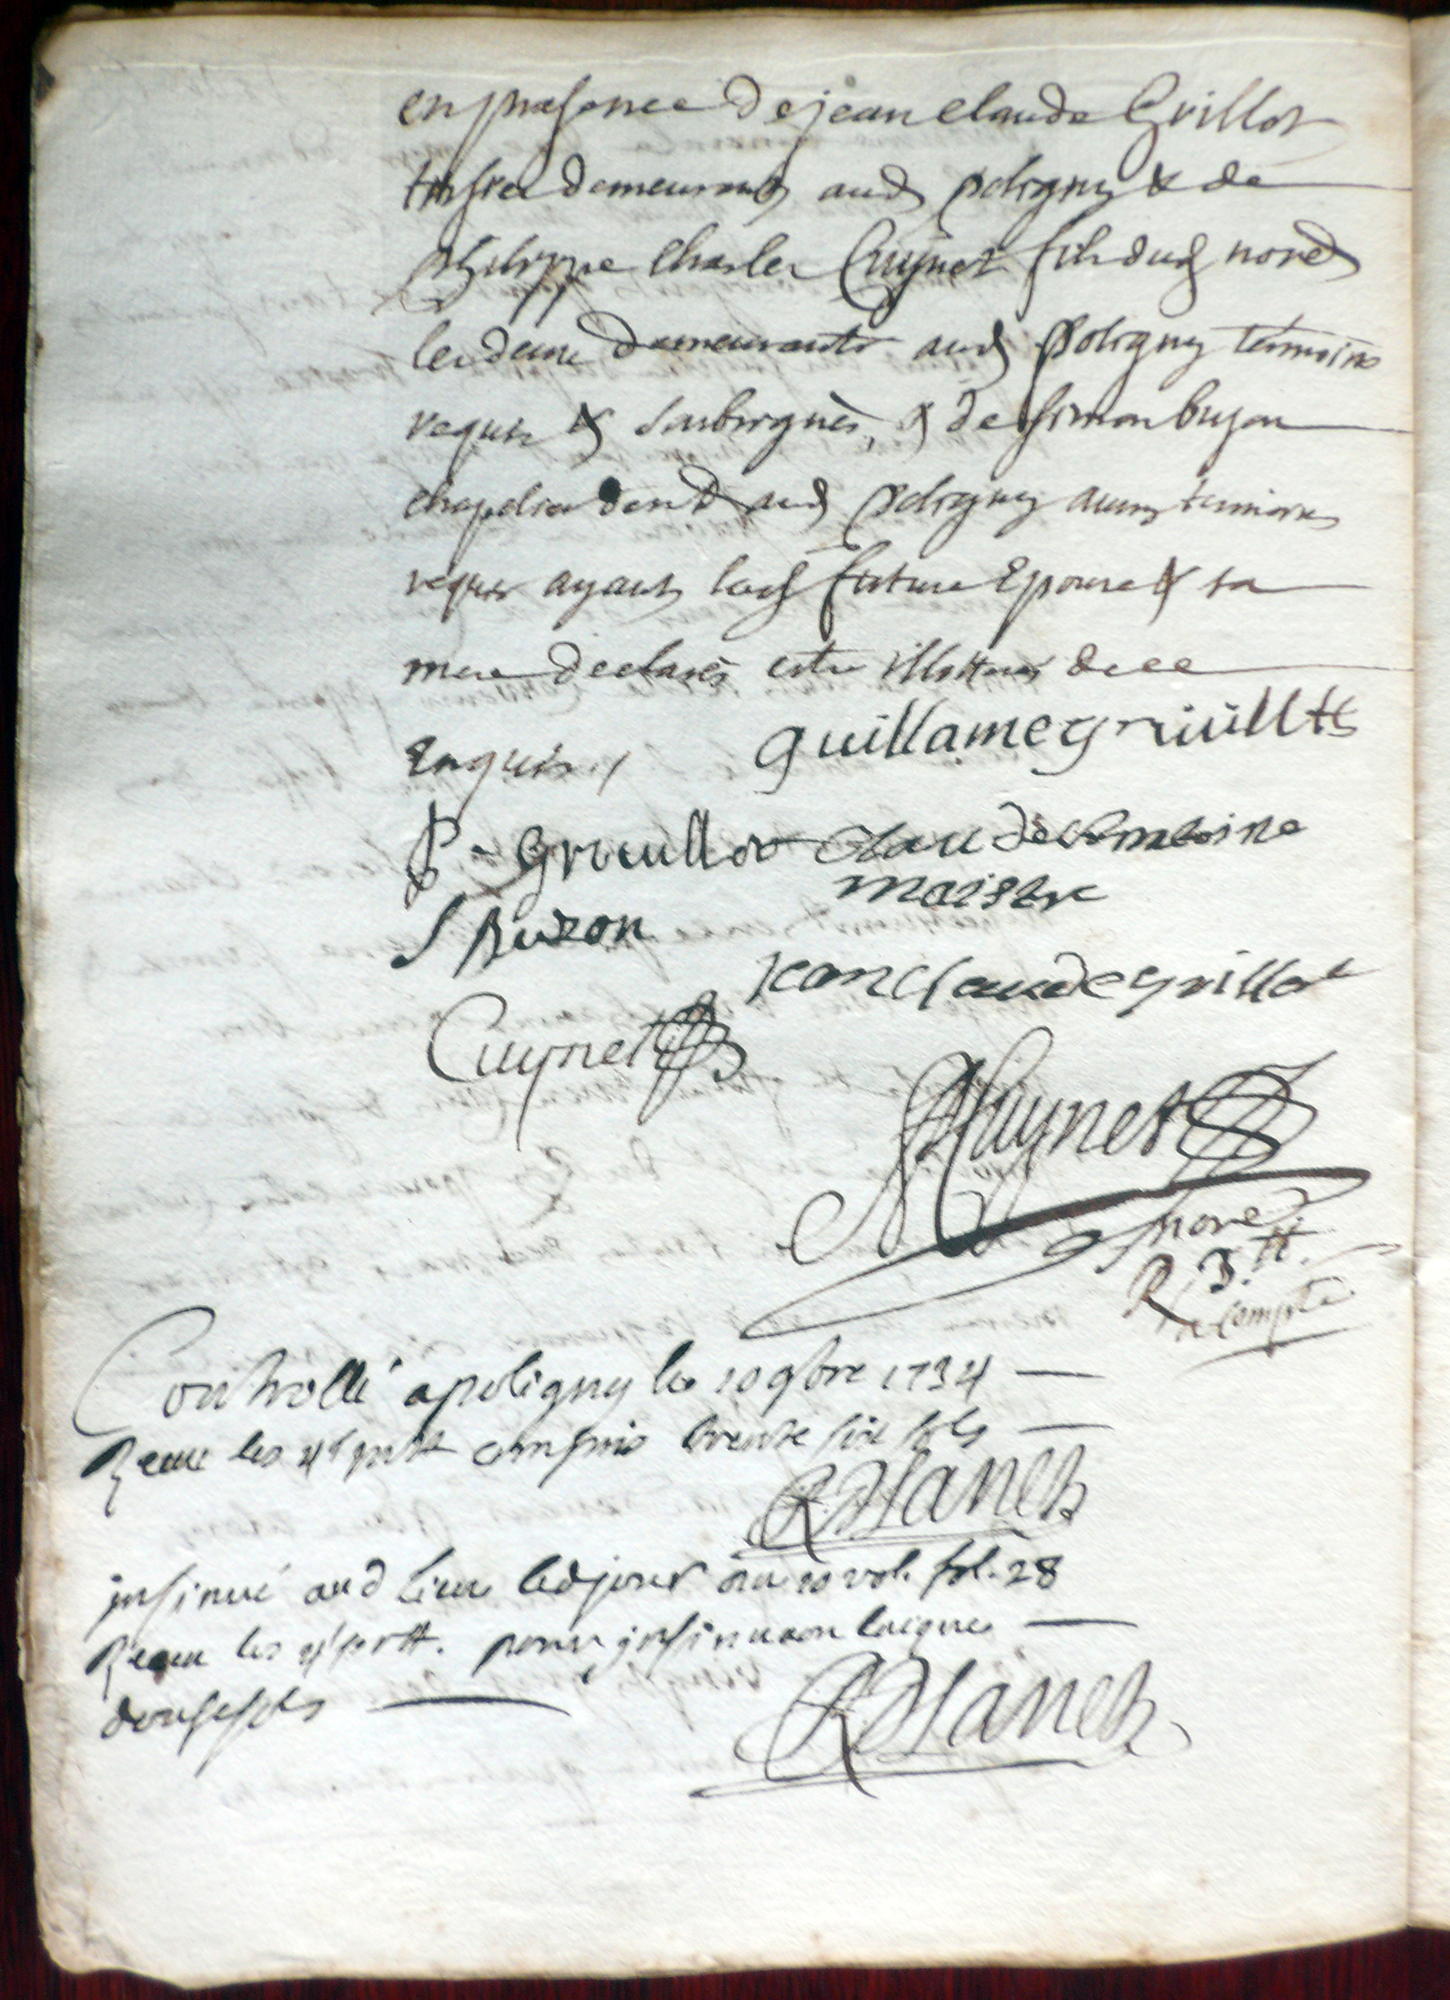 en presence de jean claude Grillot
demeurant aud poligny & de
philippe Charles Cuynet fils dud nore
les deux demeurants aud poligny temoins
requis & soubsignés, & de simon buson
chapelier demt aud poligny aussy temoins
requis ayant lad future Epouse & sa
mere declarés estre illitterés de ce
Enquis ./.
guillame griullt
P. Griullot claude antoine
maistre
S Buzon
jean claude grillot
Cuynet
Cuynet
nore
R 3 tt.
a compte
Controllé a poligny le 10 9bre 1734
Receu les 4s pr tt compris trente six sols
insinué aud lieu led jour au 10 vol. fol. 28
Receu les 4s pr tt. pour insinuaon laique
douze sols